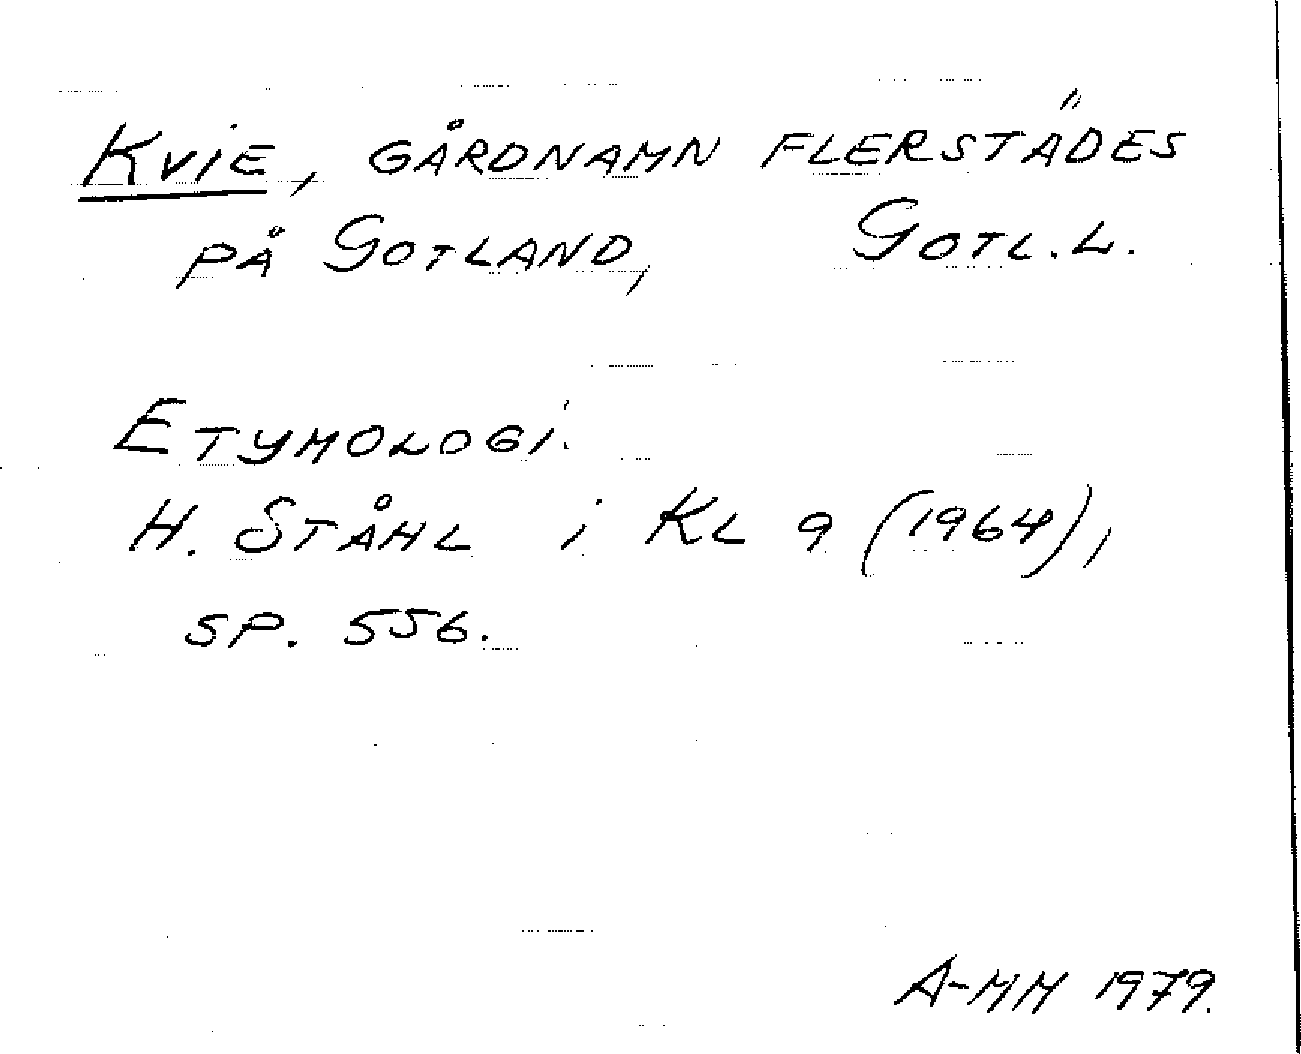 Kvie, gårdnamn flerstädes
på Gotland, Gotl.L.
Etymologi:
H. Ståhl i KL 9 (1964),
sp. 556.
A-MM 1979.